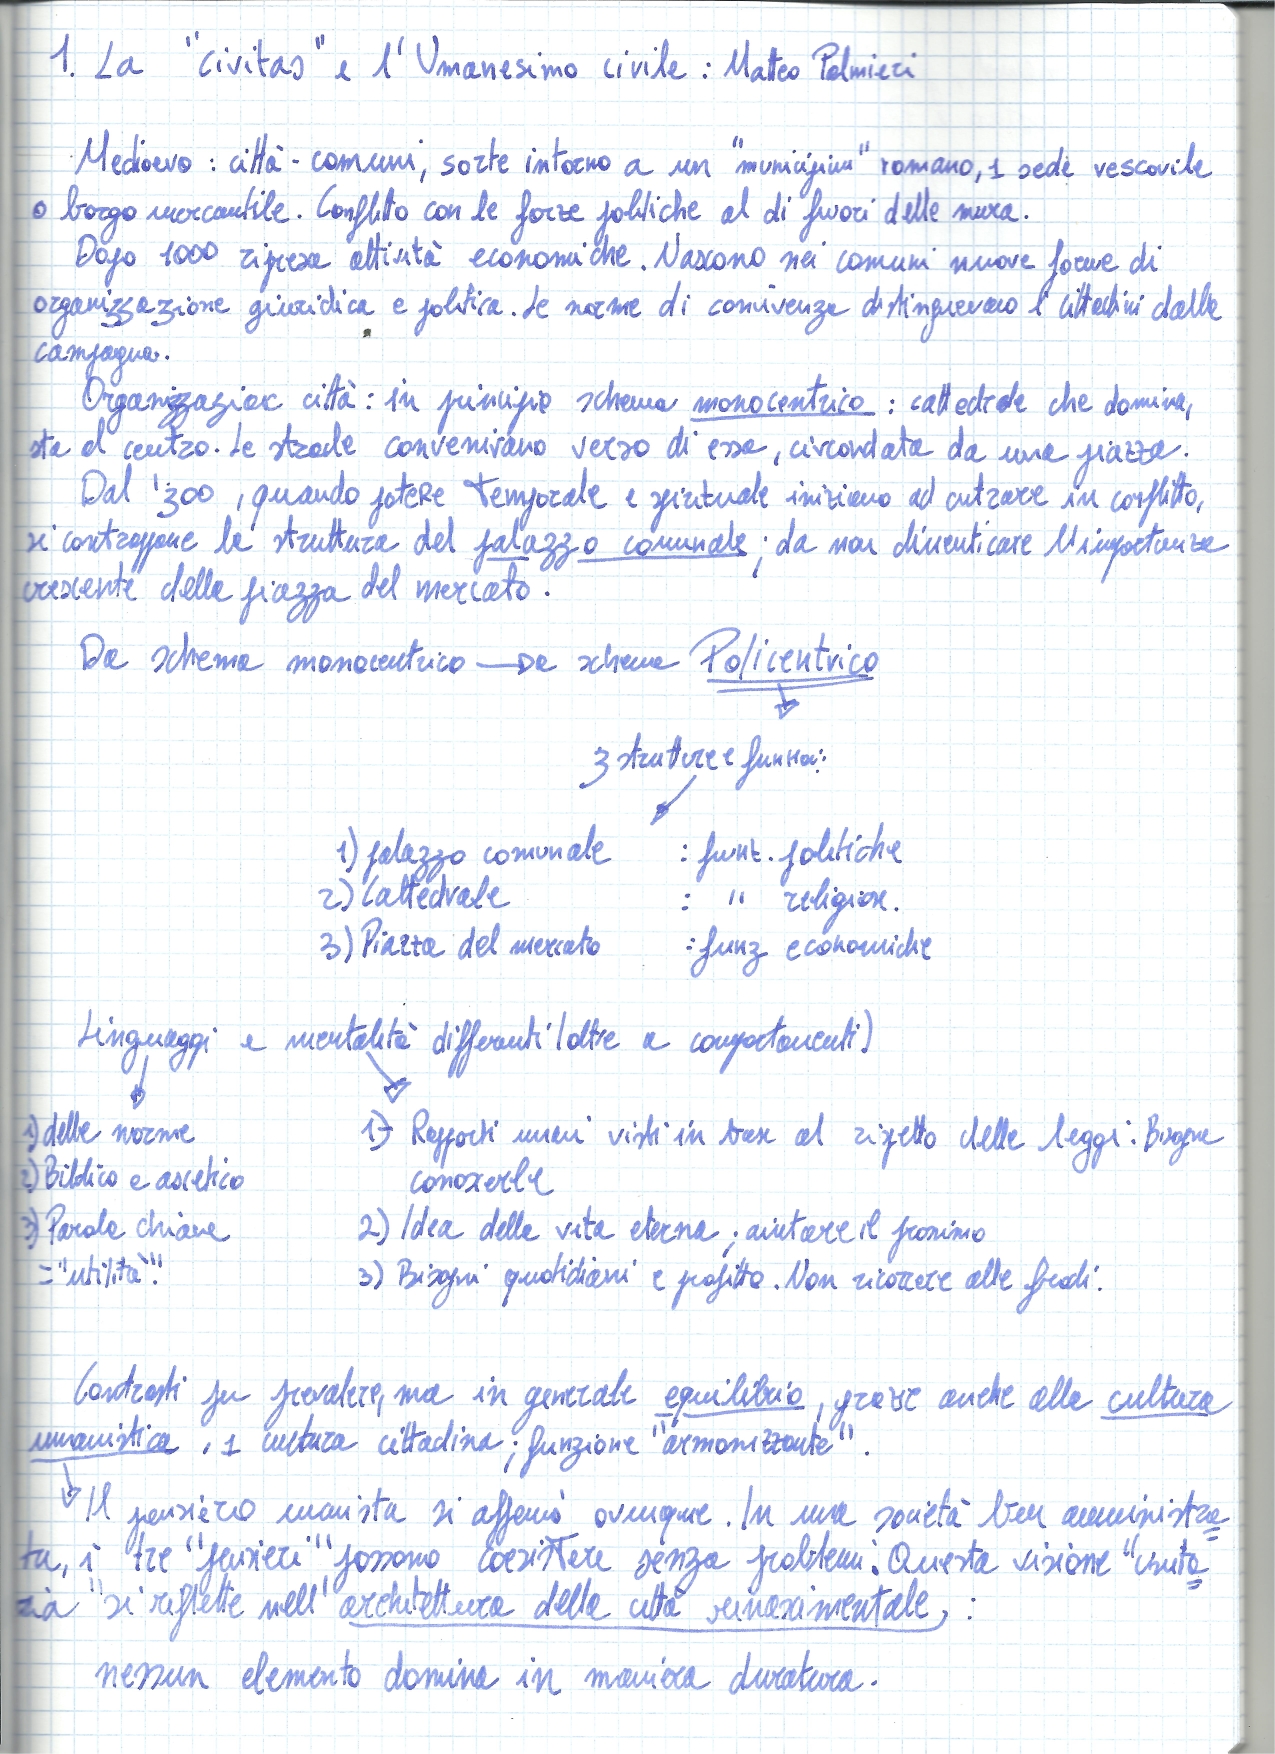 1. La "civitas" e l'Umanesimo civile : Matteo Palmieri
Medioevo : città - comuni, sorte intorno a un "municipium" romano, 1 sede vescovile
o borgo mercantile. Conflitto con le forze politiche al di fuori delle mura.
Dopo 1000 ripresa attività economiche. Nascono nei comuni nuove forme di
organizzazione giuridica e politica. Le norme di convivenza distinguevano i cittadini dalla
campagna.
Organizzazione città : in principio schema monocentrico : cattedrale che domina,
sta al centro. Le strade convenivano verso di essa, circondata da una piazza.
Dal '300 , quando potere temporale e spirituale iniziano ad entrare in conflitto,
si contrappone la struttura del palazzo comunale ; da non dimenticare l'importanza
crescente della piazza del mercato.
Da schema monocentrico → a schema Policentrico
3 strutture e funzioni:
1) palazzo comunale : funz. politiche
2) Cattedrale : " religiose.
3) Piazza del mercato : funz economiche
Linguaggi e mentalità differenti (oltre a comportamenti)
1) delle norme 1) Rapporti umani visti in base al rispetto delle leggi. Bisogna
2) Biblico e ascetico conoscerle
3) Parola chiave 2) Idea della vita eterna ; aiutare il prossimo
= "utilità". 3) Bisogni quotidiani e profitto. Non ricorrere alle frodi.
Contrasti per prevalere, ma in generale equilibrio, grazie anche alla cultura
umanistica , 1 cultura cittadina ; funzione "armonizzante".
Il pensiero umanista si affermò ovunque. In una società ben amministra=
ta, i tre "pensieri" possono coesistere senza problemi. Questa visione "unita=
ria" si riflette nell'architettura della città rinascimentale, :
nessun elemento domina in maniera duratura.